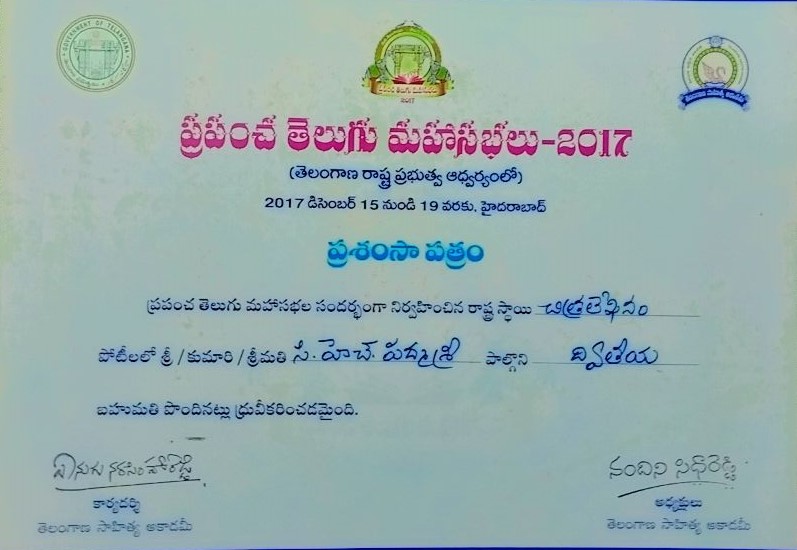 GOVERNMENT OF TELANGANA
2017
ప్రపంచ తెలుగు మహాసభలు-2017
(తెలంగాణ రాష్ట్ర ప్రభుత్వ ఆధ్వర్యంలో)
2017 డిసెంబర్ 15 నుండి 19 వరకు, హైదరాబాద్
ప్రశంసా పత్రం
ప్రపంచ తెలుగు మహాసభల సందర్భంగా నిర్వహించిన రాష్ట్ర స్థాయి చిత్రలేఖనం
పోటీలలో శ్రీ / కుమారి / శ్రీమతి సి. హెచ్. పద్మశ్రీ పాల్గొని ద్వితీయ
బహుమతి పొందినట్లు ధ్రువీకరించడమైంది.
ఏనుగు నరసింహారెడ్డి నందిని సిధారెడ్డి
కార్యదర్శి అధ్యక్షులు
తెలంగాణ సాహిత్య అకాడమీ తెలంగాణ సాహిత్య అకాడమీ